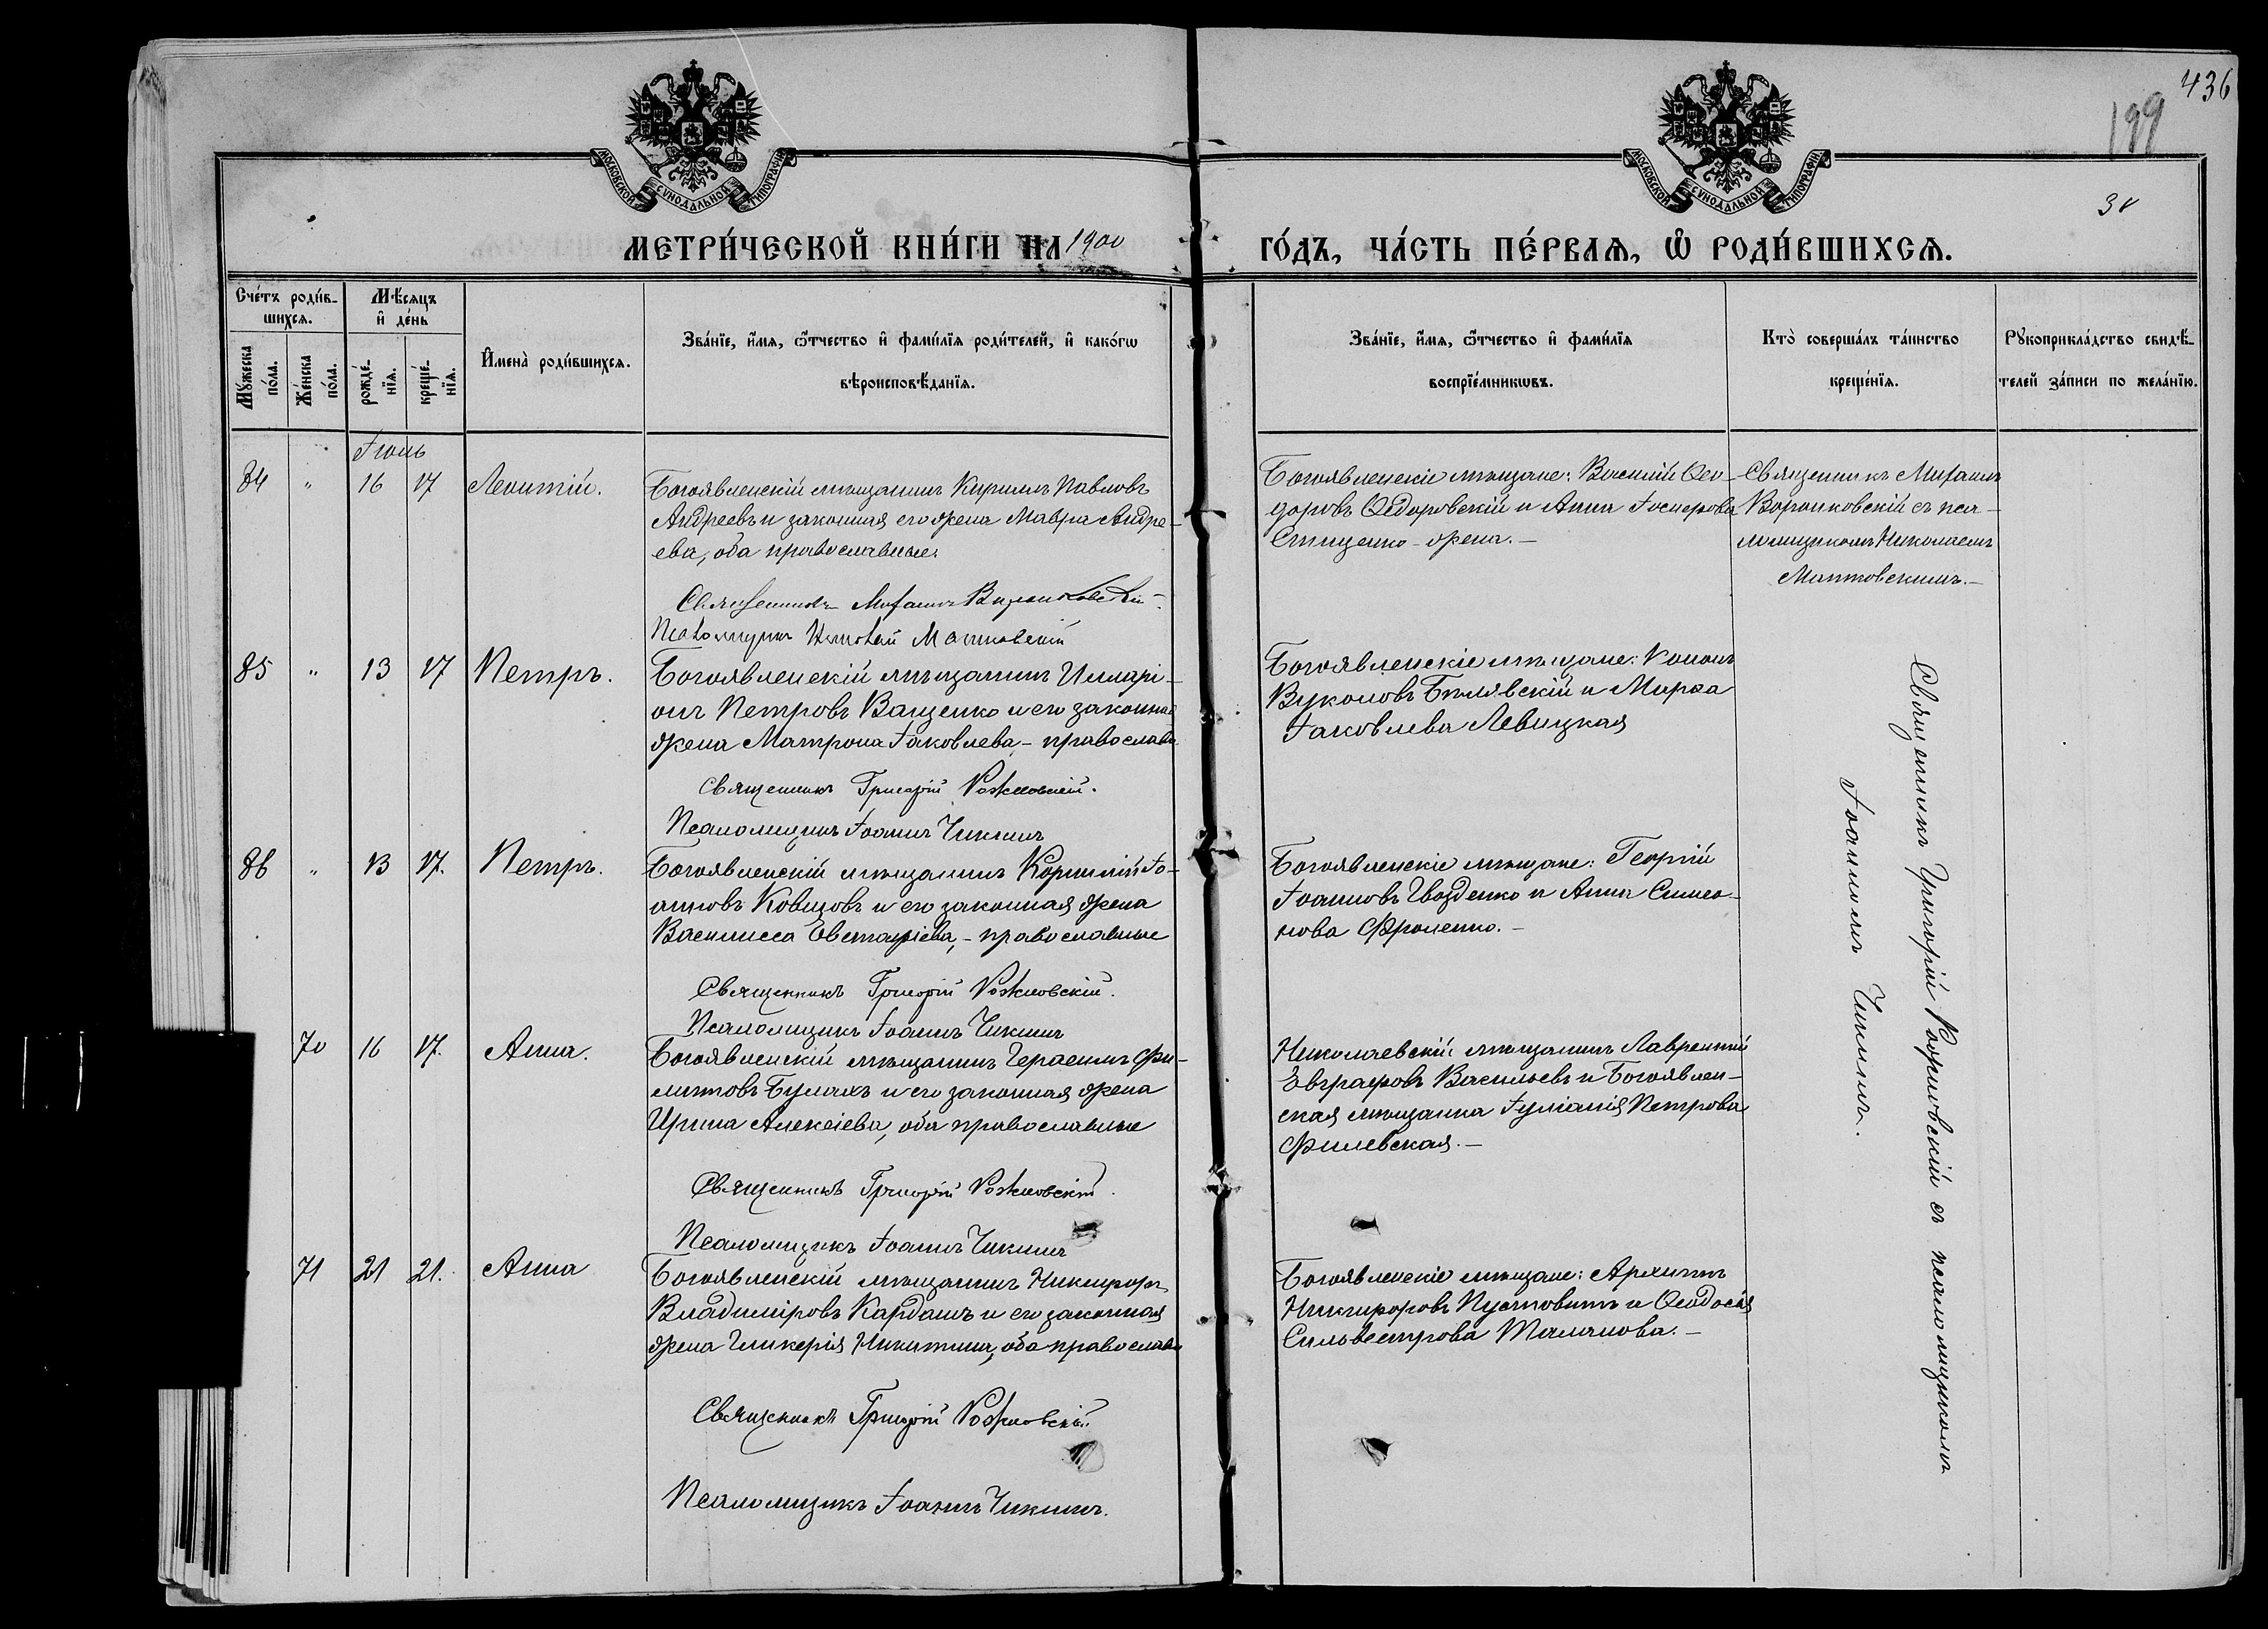 436
199
30
МОСКОВСКОЙ СѴНОДАЛЬНОЙ ТИПОГРАФІИ
МОСКОВСКОЙ СѴНОДАЛЬНОЙ ТИПОГРАФІИ
МЕТРИ́ЧЕСКОЙ КНИ́ГИ НА 1900 ГО́ДЪ, ЧА́СТЬ ПЕ́РВАѦ, Ѽ РОДИ́ВШИХСѦ.
Сче́тъ роди́в-
шихсѧ.
Мѣ́сѧцъ
и҆ де́нь
Мꙋ́жеска
по́ла.
Же́нска
по́ла.
рожде́-
нїѧ.
креще́-
нїѧ.
И҆мена̀ роди́вшихсѧ.
Зва́нїе, и҆́мѧ, ѻ҆́тчество и҆ фами́лїѧ роди́телей, и҆ како́гѡ
вѣроисповѣ́данїѧ.
Зва́нїе, и҆́мѧ, ѻ҆́тчество и҆ фами́лїѧ
воспрїе́мникѡвъ.
Кто̀ соверша́лъ та́инство
креще́нїѧ.
Рꙋкоприкла́дство свидѣ́-
телей за́писи по жела́нїю.
Іюль
84 " 16 17 Леонтій.
Богоявленскій мѣщанинъ Кириллъ Павловъ
Андреевъ и законная его жена Мавра Андре-
ева, оба православные.
Священникъ Михаилъ Воронковскій
Псаломщикъ Николай
Богоявленскіе мѣщане: Василій Ѳео-
доровъ Ѳедоровскій и Анна Іосифова
жена.—
Священникъ Михаилъ
Воронковскій съ пса-
ломщикомъ Николаемъ
85 " 13 17 Петръ.
Богоявленскій мѣщанинъ Илларі-
онъ Петровъ Ващенко и его законная
жена Матрона Іаковлева,- православн.
Священникъ Григорій
Псаломщикъ Іоаннъ Чикинъ
Богоявленскіе мѣщане: Кононъ
Вуколовъ Бѣлявскій и Марѳа
Іаковлева Левицкая
86 " 13 17. Петръ.
Богоявленскій мѣщанинъ Корнилій Іо-
анновъ Ковцовъ и его законная жена
Василисса Евстафіева,- православные
Священникъ Григорій
Псаломщикъ Іоаннъ Чикинъ
Богоявленскіе мѣщане: Георгій
Іоанновъ Гвозденко и Анна Симео-
нова Фроленко.-
70 16 17. Анна.
Богоявленскій мѣщанинъ Герасимъ Фи-
липповъ Бумахъ и его законная жена
Ирина Алексіева, оба православные
Священникъ Григорій
Псаломщикъ Іоаннъ Чикинъ
Николаевскій мѣщанинъ Лаврентій
Евграфовъ Васильевъ и Богоявлен-
ская мѣщанка Іуліанія Петрова
Филевская.—
71 21 21. Анна
Богоявленскій мѣщанинъ Никифоръ
Владиміровъ Кардашъ и его законная
жена Гликерія Никитина, оба православн.
Священникъ Григорій
Псаломщикъ Іоаннъ Чикинъ.
Богоявленскіе мѣщане: Архиппъ
Никифоровъ Пустовитъ и Ѳеодосія
Сильвестрова Таланова.—
Священникъ Григорій съ псаломщикомъ
Іоанномъ Чикинымъ.